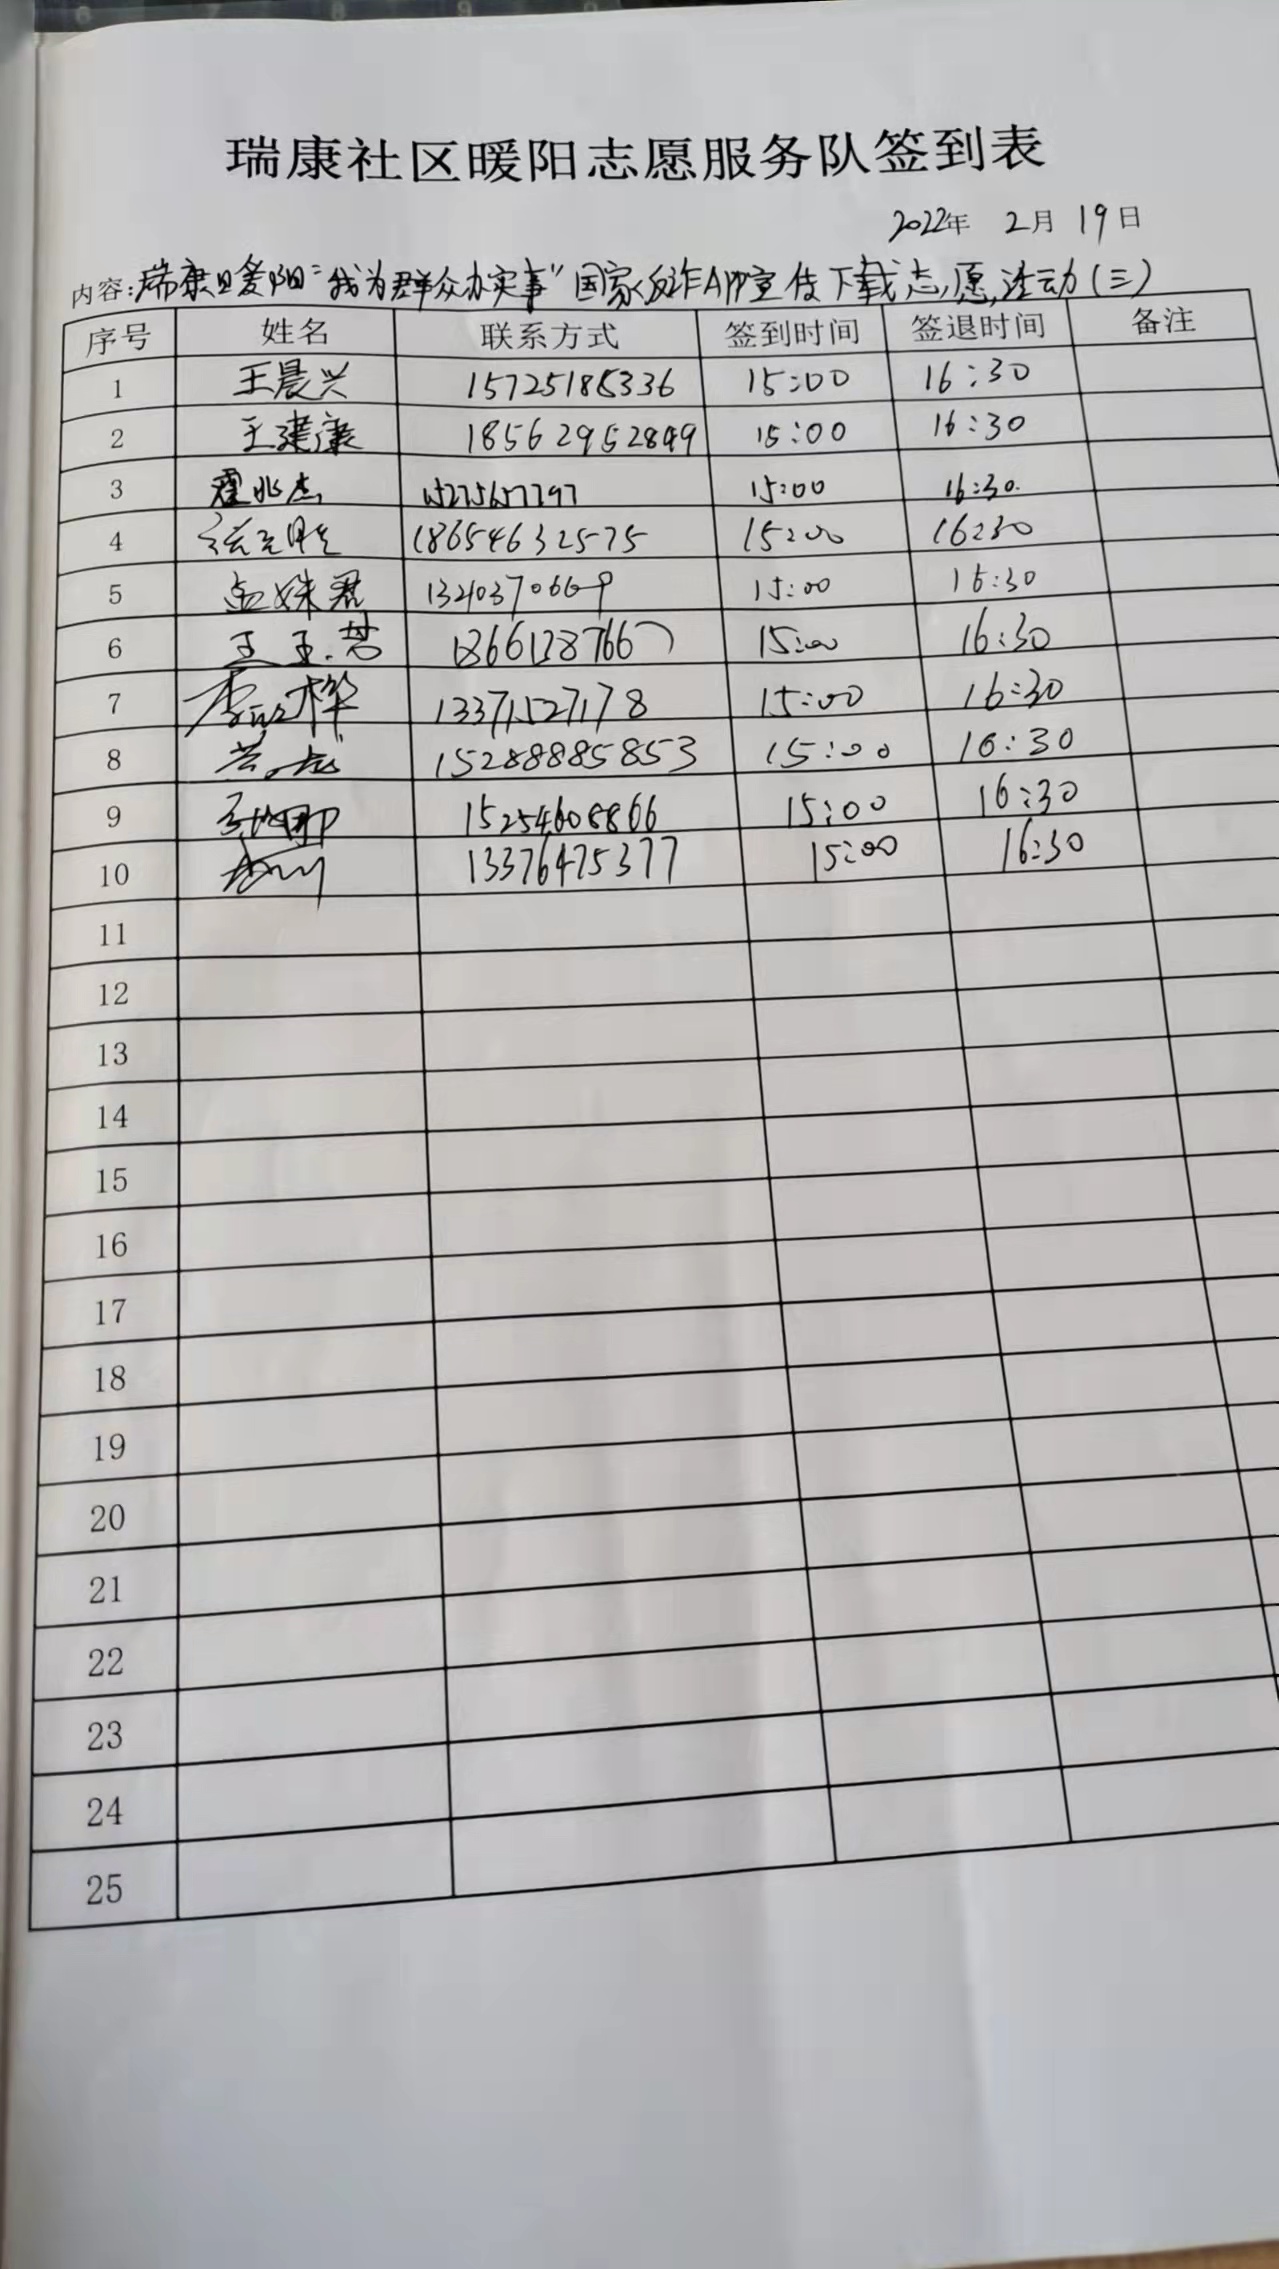 瑞康社区暖阳志愿服务队签到表
2022年 2月 19日
内容:瑞康暖阳“我为群众办实事”国家反诈APP宣传下载志愿活动(三)
序号 姓名 联系方式 签到时间 签退时间 备注
1 王晨兴 15725185336 15:00 16:30
2 王建康 18562952849 15:00 16:30
3 霍兆杰 15275657797 15:00 16:30
4 18654632575 15:00 16:30
5 孟姝君 13210370669 15:00 16:30
6 15:00 16:30
7 13371527178 15:00 16:30
8 15288885853 15:00 16:30
9 15254608866 15:00 16:30
10 13376475377 15:00 16:30
11
12
13
14
15
16
17
18
19
20
21
22
23
24
25